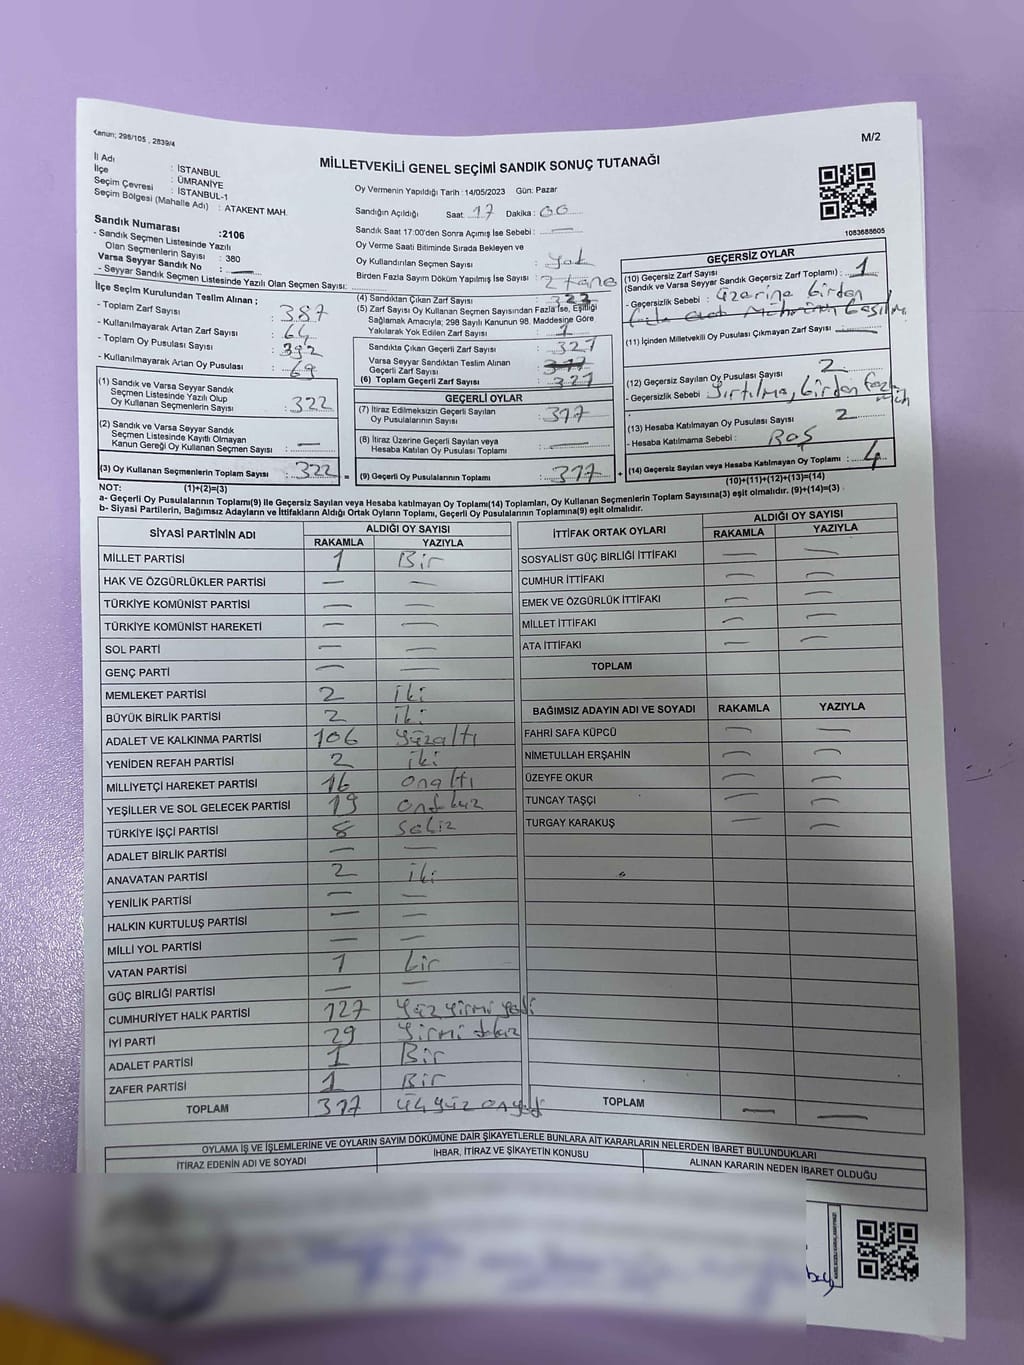 Kanun; 298/105 , 2839/4
M/2
MİLLETVEKİLİ GENEL SEÇİMİ SANDIK SONUÇ TUTANAĞI
İl Adı : İSTANBUL
İlçe : ÜMRANİYE
Seçim Çevresi : İSTANBUL-1
Seçim Bölgesi (Mahalle Adı) : ATAKENT MAH.
Sandık Numarası :2106
- Sandık Seçmen Listesinde Yazılı
Olan Seçmenlerin Sayısı : 380
Varsa Seyyar Sandık No : —
- Seyyar Sandık Seçmen Listesinde Yazılı Olan Seçmen Sayısı:
Oy Vermenin Yapıldığı Tarih :14/05/2023 Gün: Pazar
Sandığın Açıldığı Saat 17 Dakika: 00
Sandık Saat 17:00'den Sonra Açımış İse Sebebi : —
Oy Verme Saati Bitiminde Sırada Bekleyen ve
Oy Kullandırılan Seçmen Sayısı : Yok
Birden Fazla Sayım Döküm Yapılmış İse Sayısı : 2 tane
1083688605
İlçe Seçim Kurulundan Teslim Alınan ;
- Toplam Zarf Sayısı : 387
- Kullanılmayarak Artan Zarf Sayısı : 64
- Toplam Oy Pusulası Sayısı : 392
- Kullanılmayarak Artan Oy Pusulası : 69
(1) Sandık ve Varsa Seyyar Sandık
Seçmen Listesinde Yazılı Olup
Oy Kullanan Seçmenlerin Sayısı : 322
(2) Sandık ve Varsa Seyyar Sandık
Seçmen Listesinde Kayıtlı Olmayan
Kanun Gereği Oy Kullanan Seçmen Sayısı : —
(3) Oy Kullanan Seçmenlerin Toplam Sayısı : 322 =
(4) Sandıktan Çıkan Zarf Sayısı : 323
(5) Zarf Sayısı Oy Kullanan Seçmen Sayısından Fazla İse, Eşitliği
Sağlamak Amacıyla; 298 Sayılı Kanunun 98. Maddesine Göre
Yakılarak Yok Edilen Zarf Sayısı : 1
Sandıkta Çıkan Geçerli Zarf Sayısı : 321
Varsa Seyyar Sandıktan Teslim Alınan
Geçerli Zarf Sayısı :
(6) Toplam Geçerli Zarf Sayısı : 321
GEÇERLİ OYLAR
(7) İtiraz Edilmeksizin Geçerli Sayılan
Oy Pusulalarının Sayısı : 317
(8) İtiraz Üzerine Geçerli Sayılan veya
Hesaba Katılan Oy Pusulası Toplamı : —
(9) Geçerli Oy Pusulalarının Toplamı : 317 +
GEÇERSİZ OYLAR
(10) Geçersiz Zarf Sayısı
(Sandık ve Varsa Seyyar Sandık Geçersiz Zarf Toplamı) : 1
- Geçersizlik Sebebi : Üzerine birden
(11) İçinden Milletvekili Oy Pusulası Çıkmayan Zarf Sayısı : —
(12) Geçersiz Sayılan Oy Pusulası Sayısı : 2
- Geçersizlik Sebebi : Yırtılma, birden fazla
(13) Hesaba Katılmayan Oy Pusulası Sayısı : 2
- Hesaba Katılmama Sebebi : Boş
(14) Geçersiz Sayılan veya Hesaba Katılmayan Oy Toplamı : 4
(10)+(11)+(12)+(13)=(14)
NOT: (1)+(2)=(3)
a- Geçerli Oy Pusulalarının Toplamı(9) ile Geçersiz Sayılan veya Hesaba katılmayan Oy Toplamı(14) Toplamları, Oy Kullanan Seçmenlerin Toplam Sayısına(3) eşit olmalıdır. (9)+(14)=(3)
b- Siyasi Partilerin, Bağımsız Adayların ve İttifakların Aldığı Ortak Oyların Toplamı, Geçerli Oy Pusulalarının Toplamına(9) eşit olmalıdır.
SİYASİ PARTİNİN ADI ALDIĞI OY SAYISI
RAKAMLA YAZIYLA
MİLLET PARTİSİ 1 Bir
HAK VE ÖZGÜRLÜKLER PARTİSİ — —
TÜRKİYE KOMÜNİST PARTİSİ — —
TÜRKİYE KOMÜNİST HAREKETİ — —
SOL PARTİ — —
GENÇ PARTİ — —
MEMLEKET PARTİSİ 2 iki
BÜYÜK BİRLİK PARTİSİ 2 iki
ADALET VE KALKINMA PARTİSİ 106 Yüzaltı
YENİDEN REFAH PARTİSİ 2 iki
MİLLİYETÇİ HAREKET PARTİSİ 16 onaltı
YEŞİLLER VE SOL GELECEK PARTİSİ 19 ondokuz
TÜRKİYE İŞÇİ PARTİSİ 8 sekiz
ADALET BİRLİK PARTİSİ — —
ANAVATAN PARTİSİ 2 iki
YENİLİK PARTİSİ — —
HALKIN KURTULUŞ PARTİSİ — —
MİLLİ YOL PARTİSİ — —
VATAN PARTİSİ 1 bir
GÜÇ BİRLİĞİ PARTİSİ — —
CUMHURİYET HALK PARTİSİ 127 Yüz yirmi yedi
İYİ PARTİ 29 Yirmi dokuz
ADALET PARTİSİ 1 Bir
ZAFER PARTİSİ 1 Bir
TOPLAM 317 üç yüz onyedi
İTTİFAK ORTAK OYLARI ALDIĞI OY SAYISI
RAKAMLA YAZIYLA
SOSYALİST GÜÇ BİRLİĞİ İTTİFAKI — —
CUMHUR İTTİFAKI — —
EMEK VE ÖZGÜRLÜK İTTİFAKI — —
MİLLET İTTİFAKI — —
ATA İTTİFAKI — —
TOPLAM
BAĞIMSIZ ADAYIN ADI VE SOYADI RAKAMLA YAZIYLA
FAHRİ SAFA KÜPCÜ — —
NİMETULLAH ERŞAHİN — —
ÜZEYFE OKUR — —
TUNCAY TAŞÇI — —
TURGAY KARAKUŞ — —
TOPLAM — —
OYLAMA İŞ VE İŞLEMLERİNE VE OYLARIN SAYIM DÖKÜMÜNE DAİR ŞİKAYETLERLE BUNLARA AİT KARARLARIN NELERDEN İBARET BULUNDUKLARI
İTİRAZ EDENİN ADI VE SOYADI
İHBAR, İTİRAZ VE ŞİKAYETİN KONUSU
ALINAN KARARIN NEDEN İBARET OLDUĞU